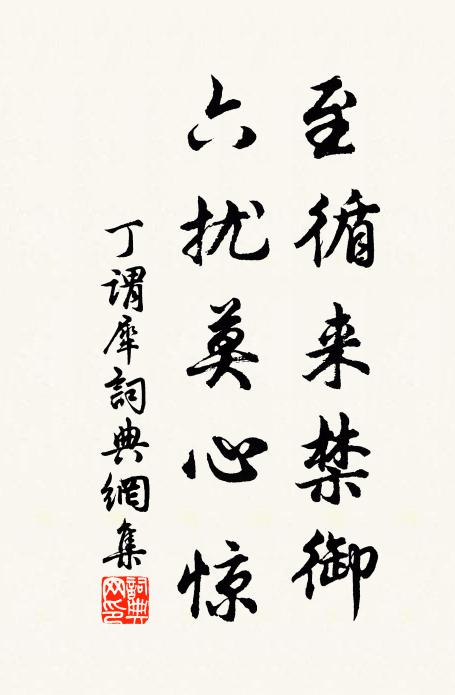 至循来禁御
六扰莫心惊
丁謂犀詞典網集
詞典網印